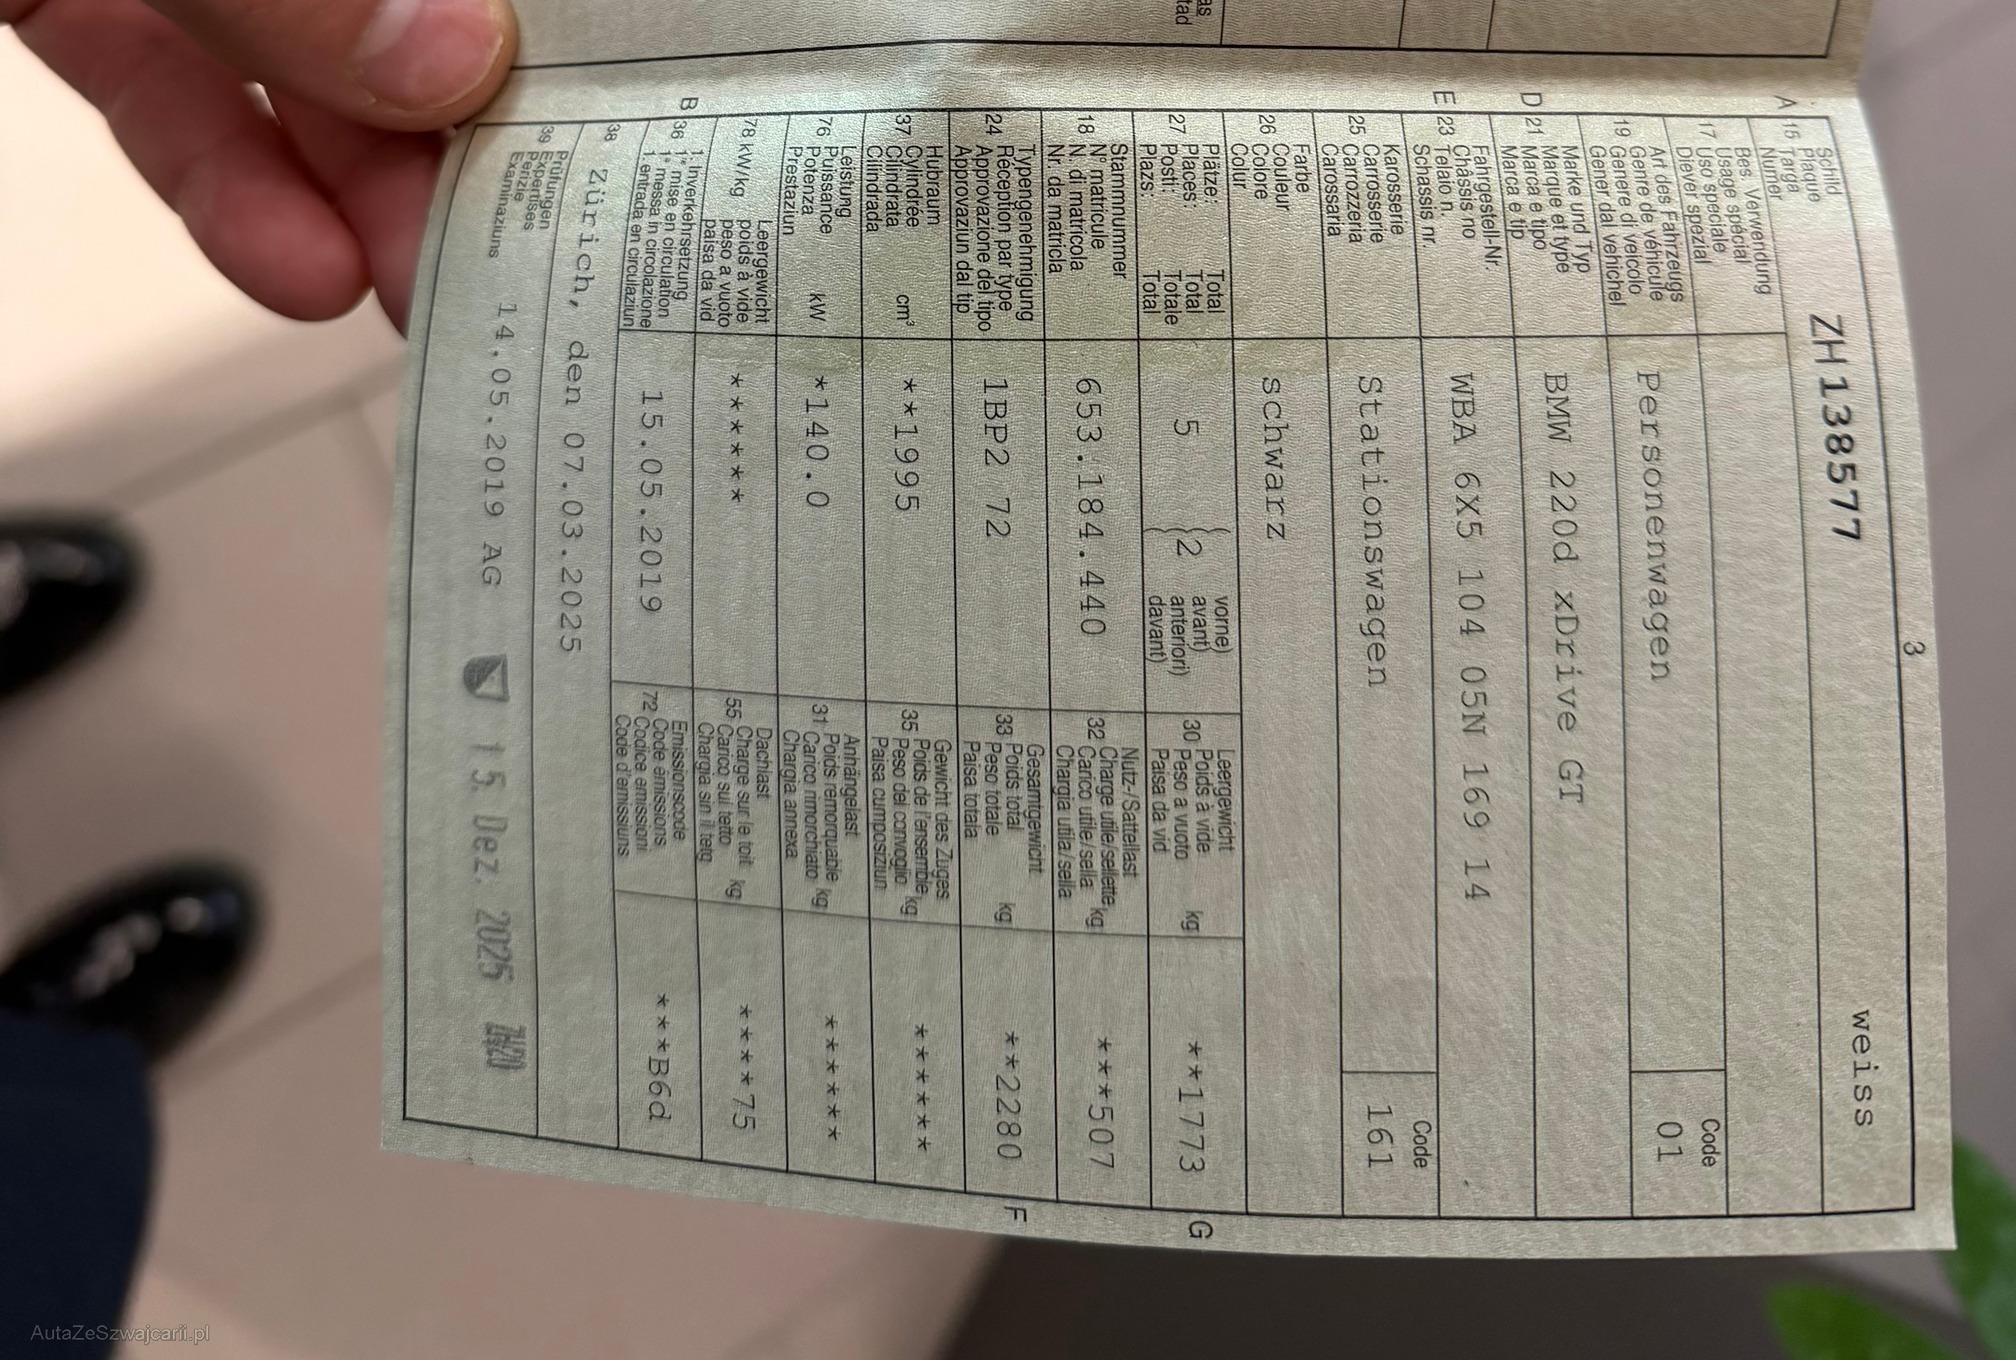 as
tad
3
A 15 Schild
Plaque
Targa
Numer
ZH138577
weiss
17 Bes. Verwendung
Usage spécial
Uso speciale
Diever spezial
19 Art des Fahrzeugs
Genre de véhicule
Genere di veicolo
Gener dal vehichel
Personenwagen
Code
01
D 21 Marke und Typ
Marque et type
Marca e tipo
Marca e tip
BMW 220d xDrive GT
E 23 Fahrgestell-Nr.
Châssis no
Telaio n.
Schassis nr.
WBA 6X5 104 05N 169 14
25 Karosserie
Carrosserie
Carrozzeria
Carossaria
Stationswagen
Code
161
26 Farbe
Couleur
Colore
Colur
schwarz
27 Plätze: Total
Places: Total
Posti: Totale
Plazs: Total
5
2
vorne)
avant)
anteriori)
davant)
30 Leergewicht
Poids à vide
Peso a vuoto kg
Paisa da vid
**1773
G
18 Stammnummer
N° matricule
N. di matricola
Nr. da matricla
653.184.440
32 Nutz-/Sattellast
Charge utile/sellette
Carico utile/sella kg
Chargia utila/sella
***507
24 Typengenehmigung
Réception par type
Approvazione del tipo
Approvaziun dal tip
1BP2 72
33 Gesamtgewicht
Poids total
Peso totale kg
Paisa totala
**2280
F
37 Hubraum
Cylindrée
Cilindrata cm³
Cilindrada
**1995
35 Gewicht des Zuges
Poids de l'ensemble
Peso del convoglio kg
Paisa cumposiziun
******
76 Leistung
Puissance
Potenza kW
Prestaziun
*140.0
31 Anhängelast
Poids remorquable
Carico rimorchiato kg
Chargia annexa
******
78 kW/kg Leergewicht
poids à vide
peso a vuoto
paisa da vid
******
55 Dachlast
Charge sur le toit
Carico sul tetto kg
Chargia sin il tetg
****75
B 36 1. Inverkehrsetzung
1re mise en circulation
1a messa in circolazione
1. entrada en circulaziun
15.05.2019
72 Emissionscode
Code émissions
Codice emissioni
Code d'emissiuns
***B6d
38 Zürich, den 07.03.2025
39 Prüfungen
Expertises
Perizie
Examinaziuns
14.05.2019 AG
15. Dez. 2025
AutaZeSzwajcarii.pl